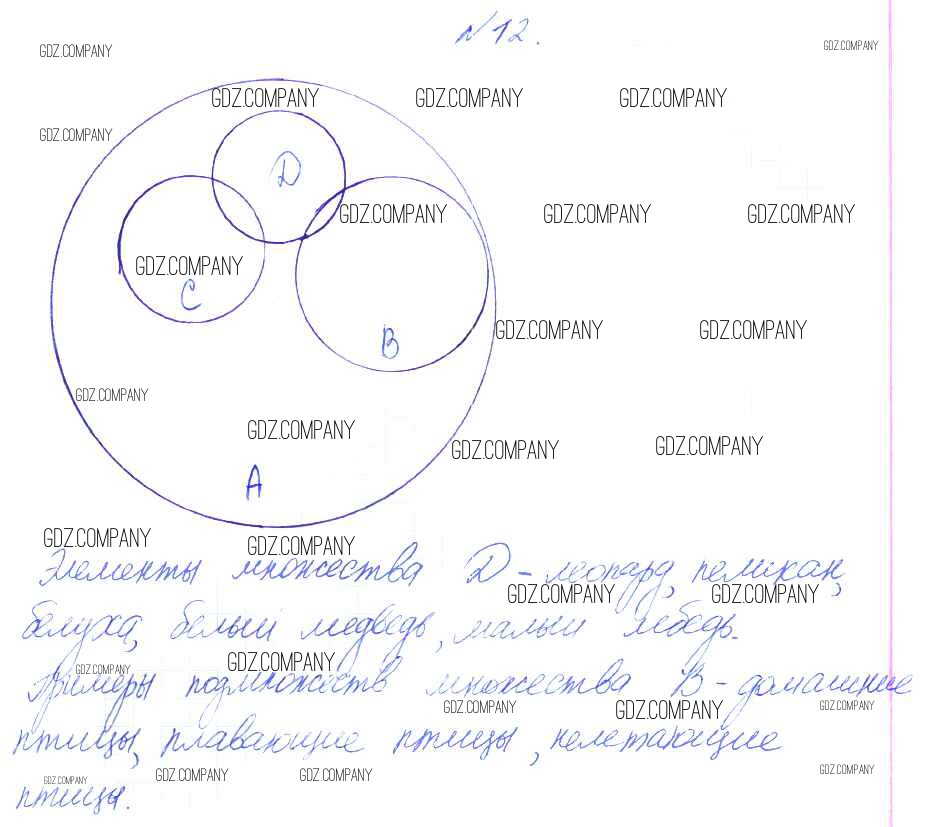 №12.
GDZ.COMPANY
GDZ.COMPANY
GDZ.COMPANY GDZ.COMPANY GDZ.COMPANY
GDZ.COMPANY
D
GDZ.COMPANY GDZ.COMPANY GDZ.COMPANY
GDZ.COMPANY
C
GDZ.COMPANY GDZ.COMPANY
B
GDZ.COMPANY
GDZ.COMPANY
GDZ.COMPANY GDZ.COMPANY
A
GDZ.COMPANY GDZ.COMPANY
Элементы множества D - леопард, пеликан,
GDZ.COMPANY GDZ.COMPANY
белуха, белый медведь, малый лебедь.
GDZ.COMPANY GDZ.COMPANY
Примеры подмножеств множества B - домашние
GDZ.COMPANY GDZ.COMPANY GDZ.COMPANY
птицы, плавающие птицы, нелетающие
GDZ.COMPANY GDZ.COMPANY GDZ.COMPANY GDZ.COMPANY
птицы.